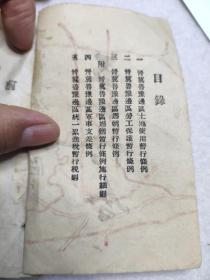 目錄
一 晉冀魯豫邊區土地使用暫行條例
二 晉冀魯豫邊區勞工保護暫行條例
三 晉冀魯豫邊區婚姻暫行條例
附 晉冀魯豫邊區婚姻暫行條例施行細則
四 晉冀魯豫邊區軍事支差條例
五 晉冀魯豫邊區統一累進稅暫行稅則